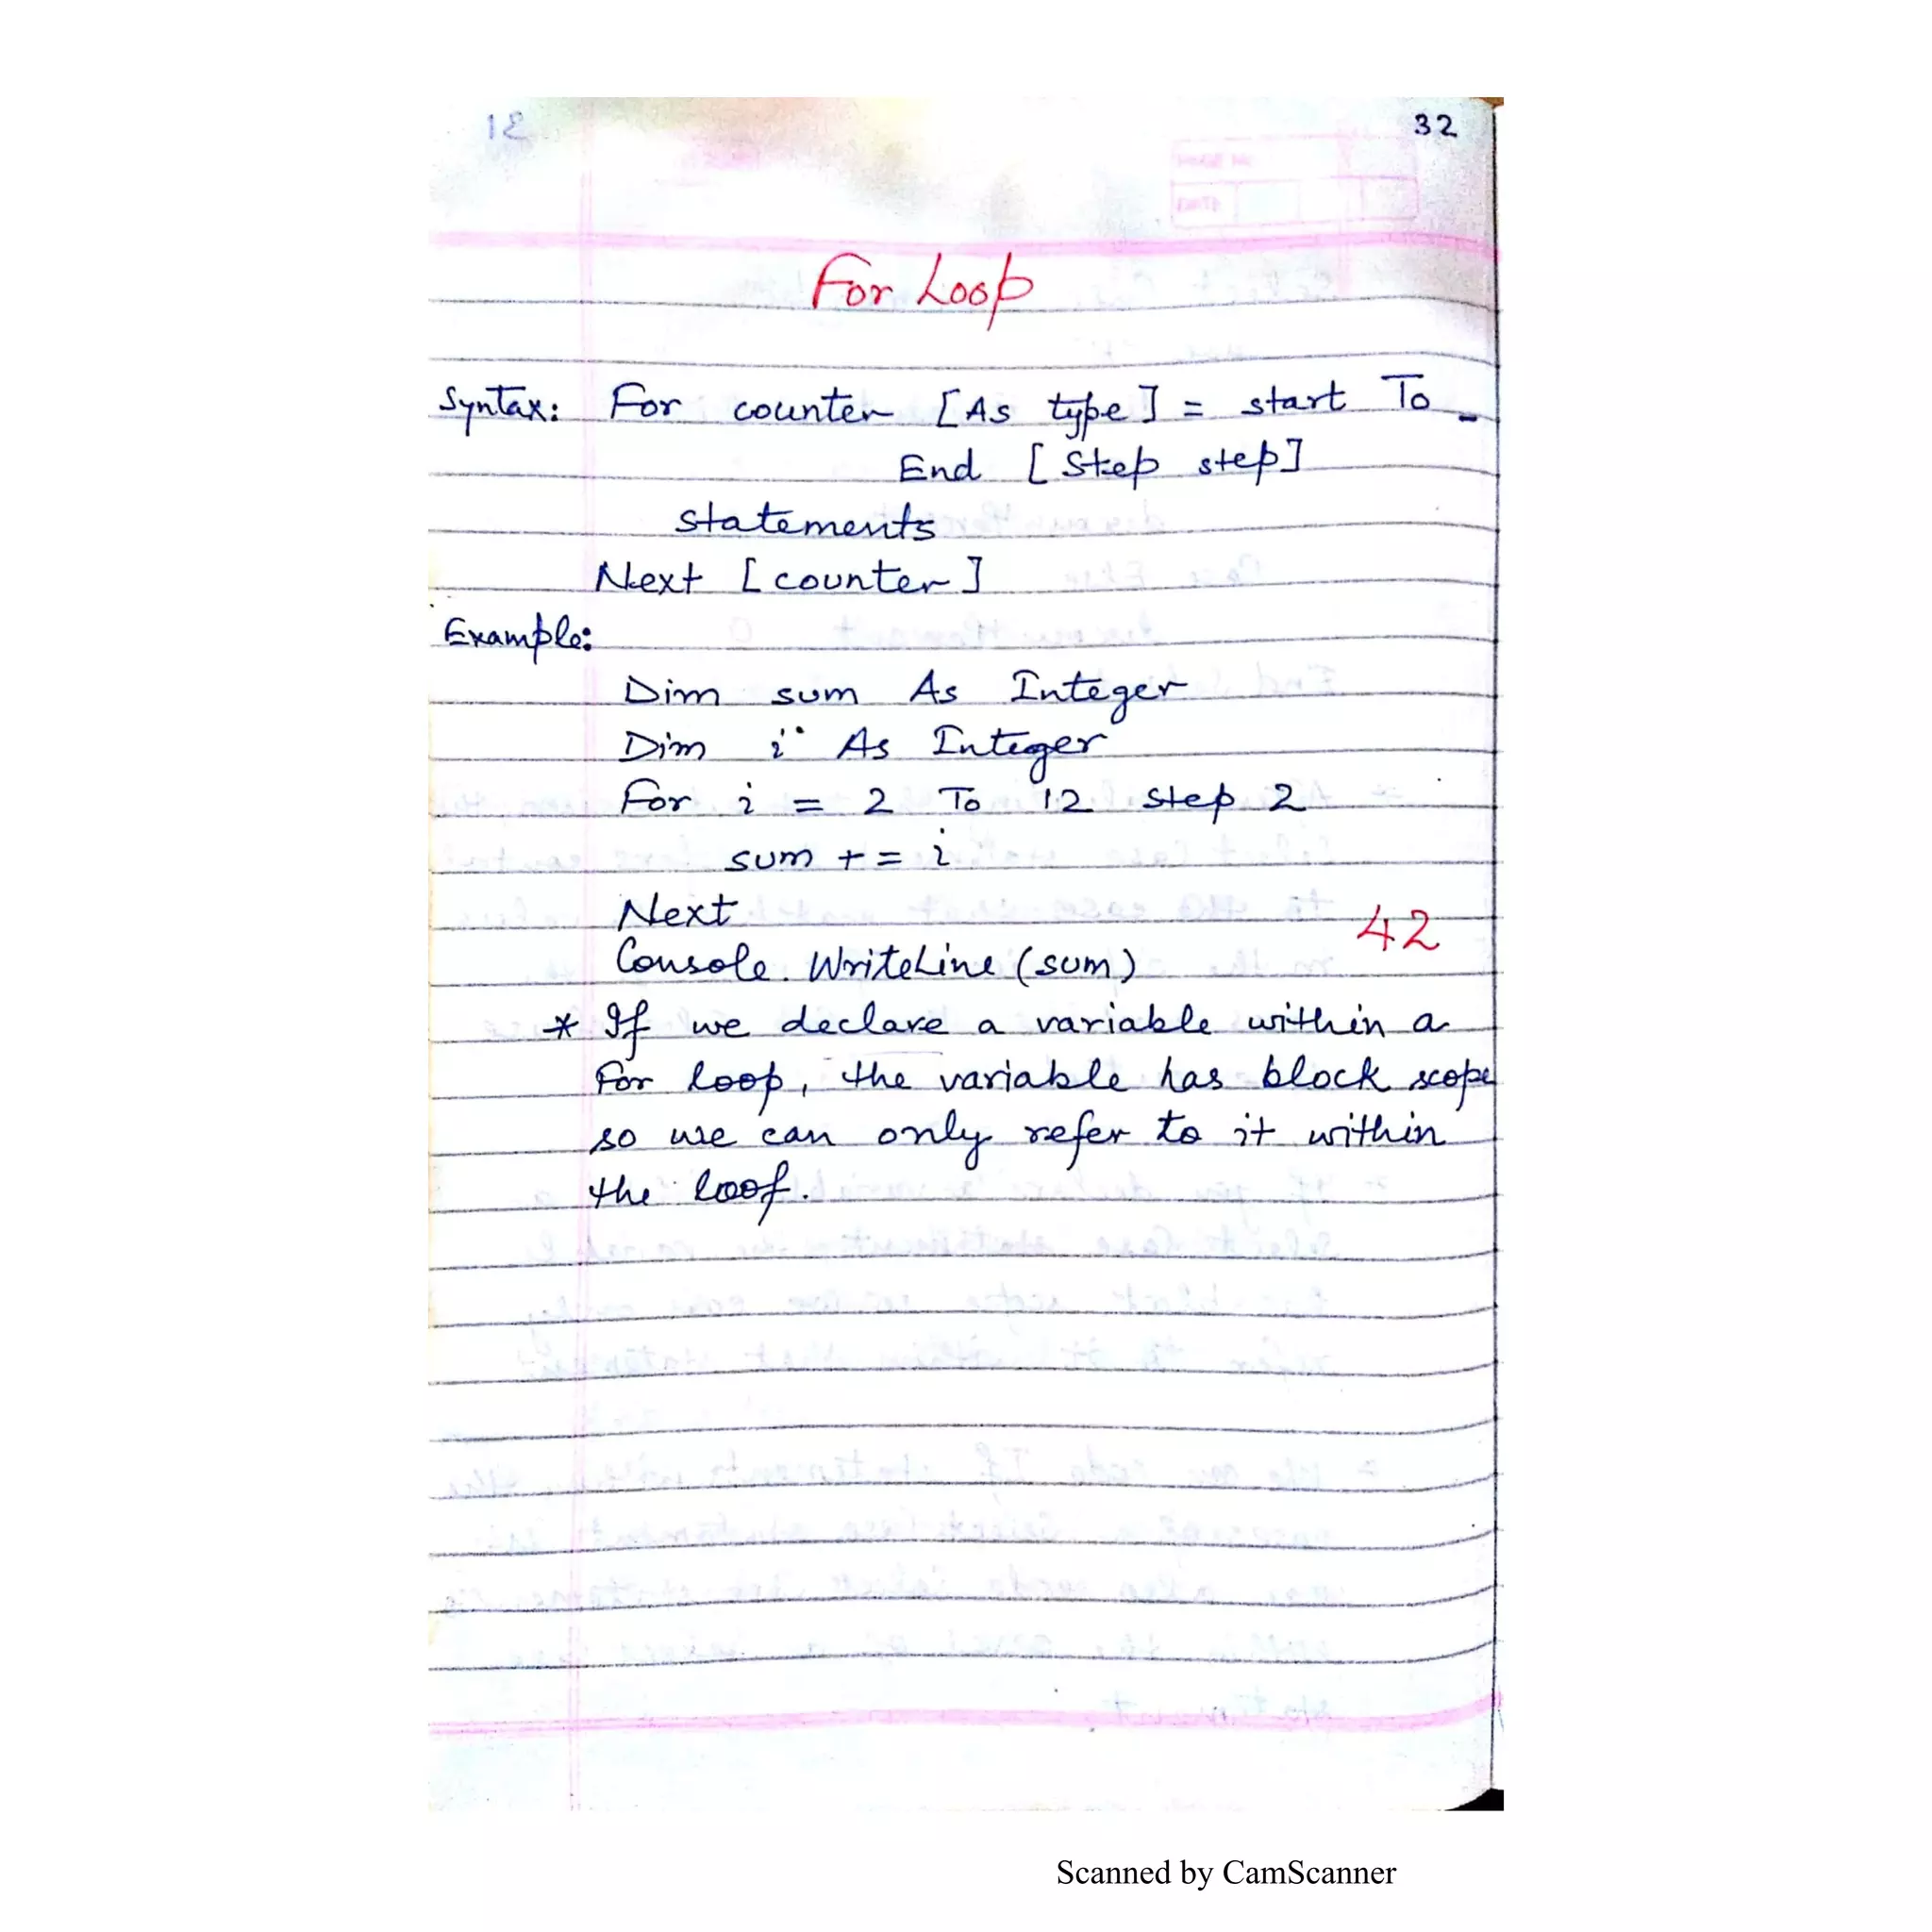 32
For Loop
Syntax: For counter [As type] = start To _
End [Step step]
statements
Next [counter]
Example:
Dim sum As Integer
Dim i As Integer
For i = 2 To 12 step 2
sum += i
Next
42
Console.WriteLine(sum)
* If we declare a variable within a
For loop, the variable has block scope
so we can only refer to it within
the loof.
Scanned by CamScanner